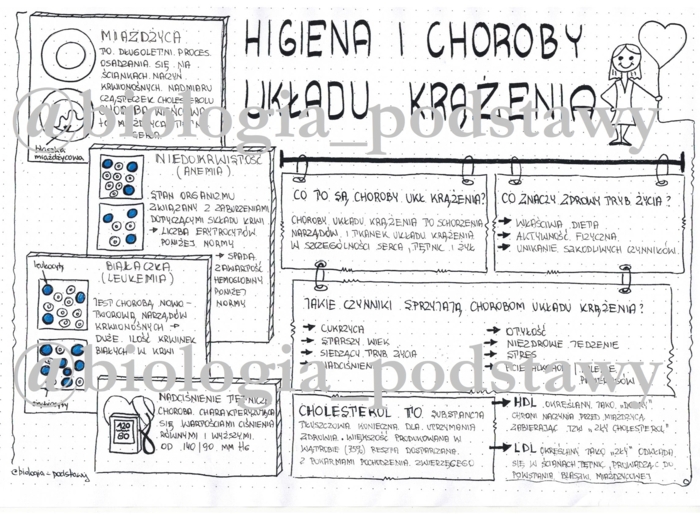 HIGIENA I CHOROBY
UKŁADU KRĄŻENIA
MIAŻDŻYCA
TO DŁUGOLETNI PROCES
OSADZANIA SIĘ NA
ŚCIANKACH NACZYŃ
KRWIONOŚNYCH NADMIARU
CZĄSTECZEK CHOLESTEROLU
CHOROBA WIEŃCOWA
TO MIAŻDŻYCA TĘTNIC
SERCA
blaszka
miażdżycowa
@biologia_podstawy
NIEDOKRWISTOŚĆ
(ANEMIA)
STAN ORGANIZMU
ZWIĄZANY Z ZABURZENIAMI
DOTYCZĄCYMI SKŁADU KRWI
→ LICZBA ERYTROCYTÓW
PONIŻEJ NORMY
→ SPADA
ZAWARTOŚĆ
HEMOGLOBINY
PONIŻEJ
NORMY
CO TO SĄ CHOROBY UKŁ KRĄŻENIA?
CHOROBY UKŁADU KRĄŻENIA TO SCHORZENIA
NARZĄDÓW I TKANEK UKŁADU KRĄŻENIA
W SZCZEGÓLNOŚCI SERCA, TĘTNIC I ŻYŁ
CO ZNACZY ZDROWY TRYB ŻYCIA?
→ WŁAŚCIWA DIETA
→ AKTYWNOŚĆ FIZYCZNA
→ UNIKANIE SZKODLIWYCH CZYNNIKÓW
BIAŁACZKA
(LEUKEMIA)
leukocyty
JEST CHOROBĄ NOWO-
TWOROWĄ NARZĄDÓW
KRWIONOŚNYCH →
DUŻE ILOŚĆ KRWINEK
BIAŁYCH W KRWI
erytrocyty
JAKIE CZYNNIKI SPRZYJAJĄ CHOROBOM UKŁADU KRĄŻENIA?
→ CUKRZYCA
→ STARSZY WIEK
→ SIEDZĄCY TRYB ŻYCIA
→ NADCIŚNIENIE
→ OTYŁOŚĆ
→ NIEZDROWE JEDZENIE
→ STRES
→ PICIE ALKOHOLU I PALENIE
PAPIEROSÓW
@biologia_podstawy
NADCIŚNIENIE TĘTNICZE
CHOROBA CHARAKTERYZUJĄCA
SIĘ WARTOŚCIAMI CIŚNIENIA
RÓWNYMI I WYŻSZYMI
OD 140/90 MM HG
120
80
CHOLESTEROL TO SUBSTANCJA
TŁUSZCZOWA KONIECZNA DLA UTRZYMANIA
ZDROWIA. WIĘKSZOŚĆ PRODUKOWANA W
WĄTROBIE (75%) RESZTA DOSTARCZANA
Z POKARMAMI POCHODZENIA ZWIERZĘCEGO
→ HDL OKREŚLANY JAKO "DOBRY"
CHRONI NACZYNIA PRZED MIAŻDŻYCĄ
ZABIERAJĄC TZW "ZŁY CHOLESTEROL"
→ LDL OKREŚLANY JAKO "ZŁY" ODKŁADA
SIĘ W ŚCIANACH TĘTNIC, PROWADZĄC DO
POWSTANIA BLASZKI MIAŻDŻYCOWEJ
@biologia_podstawy